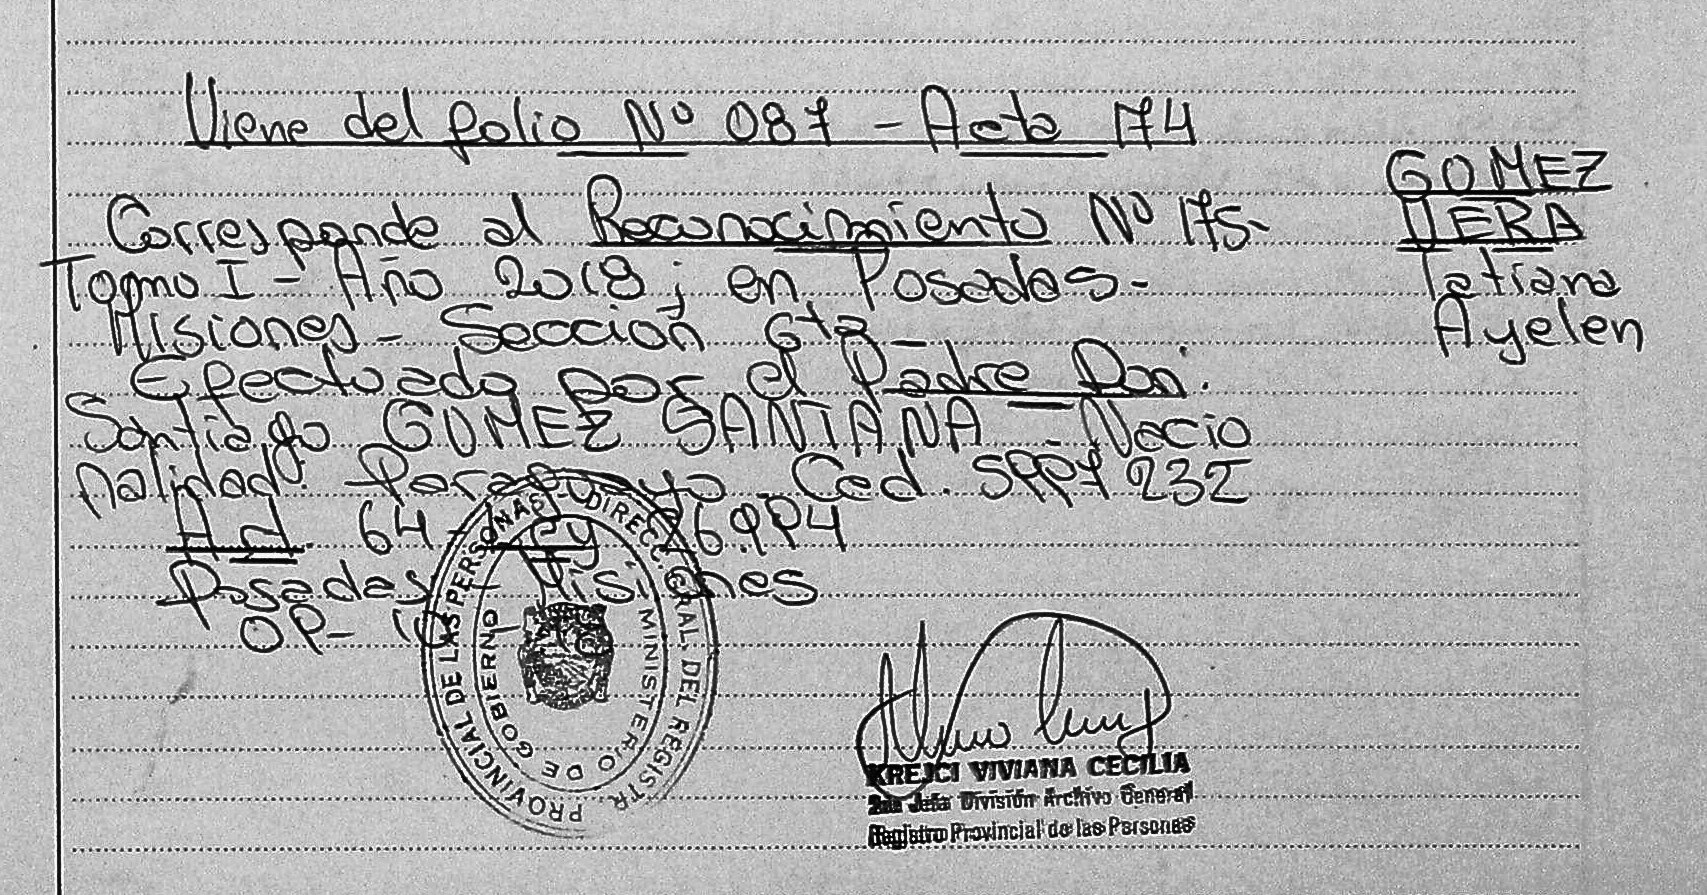 Viene del folio Nº 087 - Acta 174
Corresponde al Reconocimiento Nº 175-
Tomo I - Año 2018; en Posadas-
Misiones - Sección 6ta -
Efectuado por el Padre Don.
Santiago GOMEZ SANTANA - Nacio
nalidad: Paraguayo. Ced. 5997232
Ad. 64 - Ley 26.994
Posadas - Misiones
OP-
GOMEZ
VERA
Tatiana
Ayelen
DIRECC. GRAL. DEL REGISTR. PROVINCIAL DE LAS PERSONAS
MINISTERIO DE GOBIERNO
KREJCI VIVIANA CECILIA
2da Jefa División Archivo General
Registro Provincial de las Personas